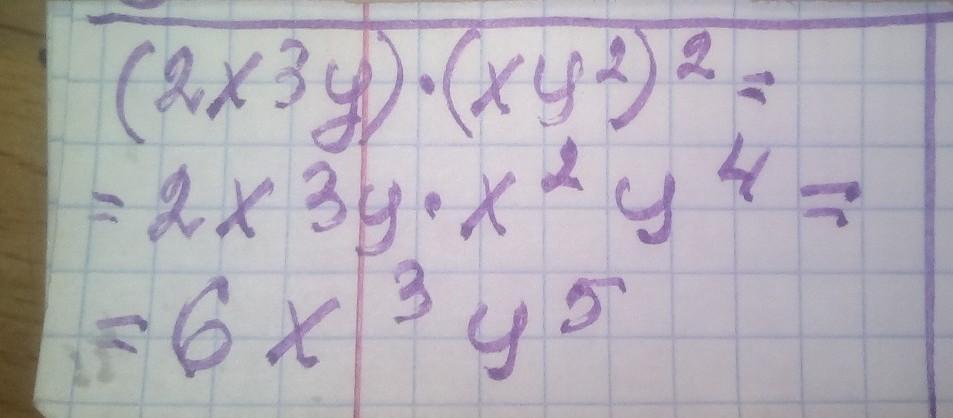 (2x3y)·(xy²)²=
=2x3y·x²y⁴=
=6x³y⁵